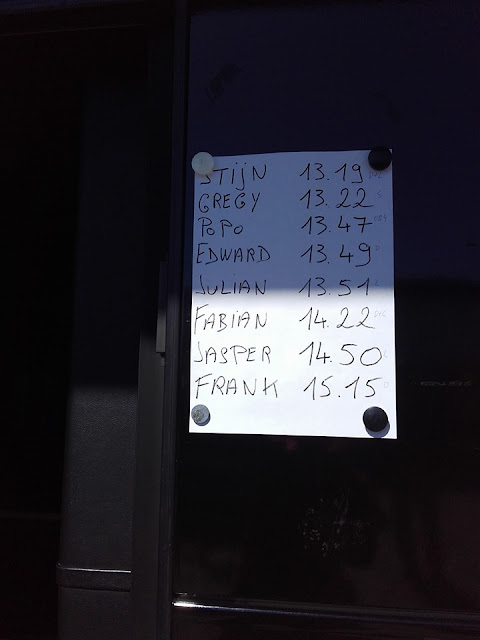 STIJN 13.19
GREGY 13.22
POPO 13.47
EDWARD 13.49
JULIAN 13.51
FABIAN 14.22
JASPER 14.50
FRANK 15.15